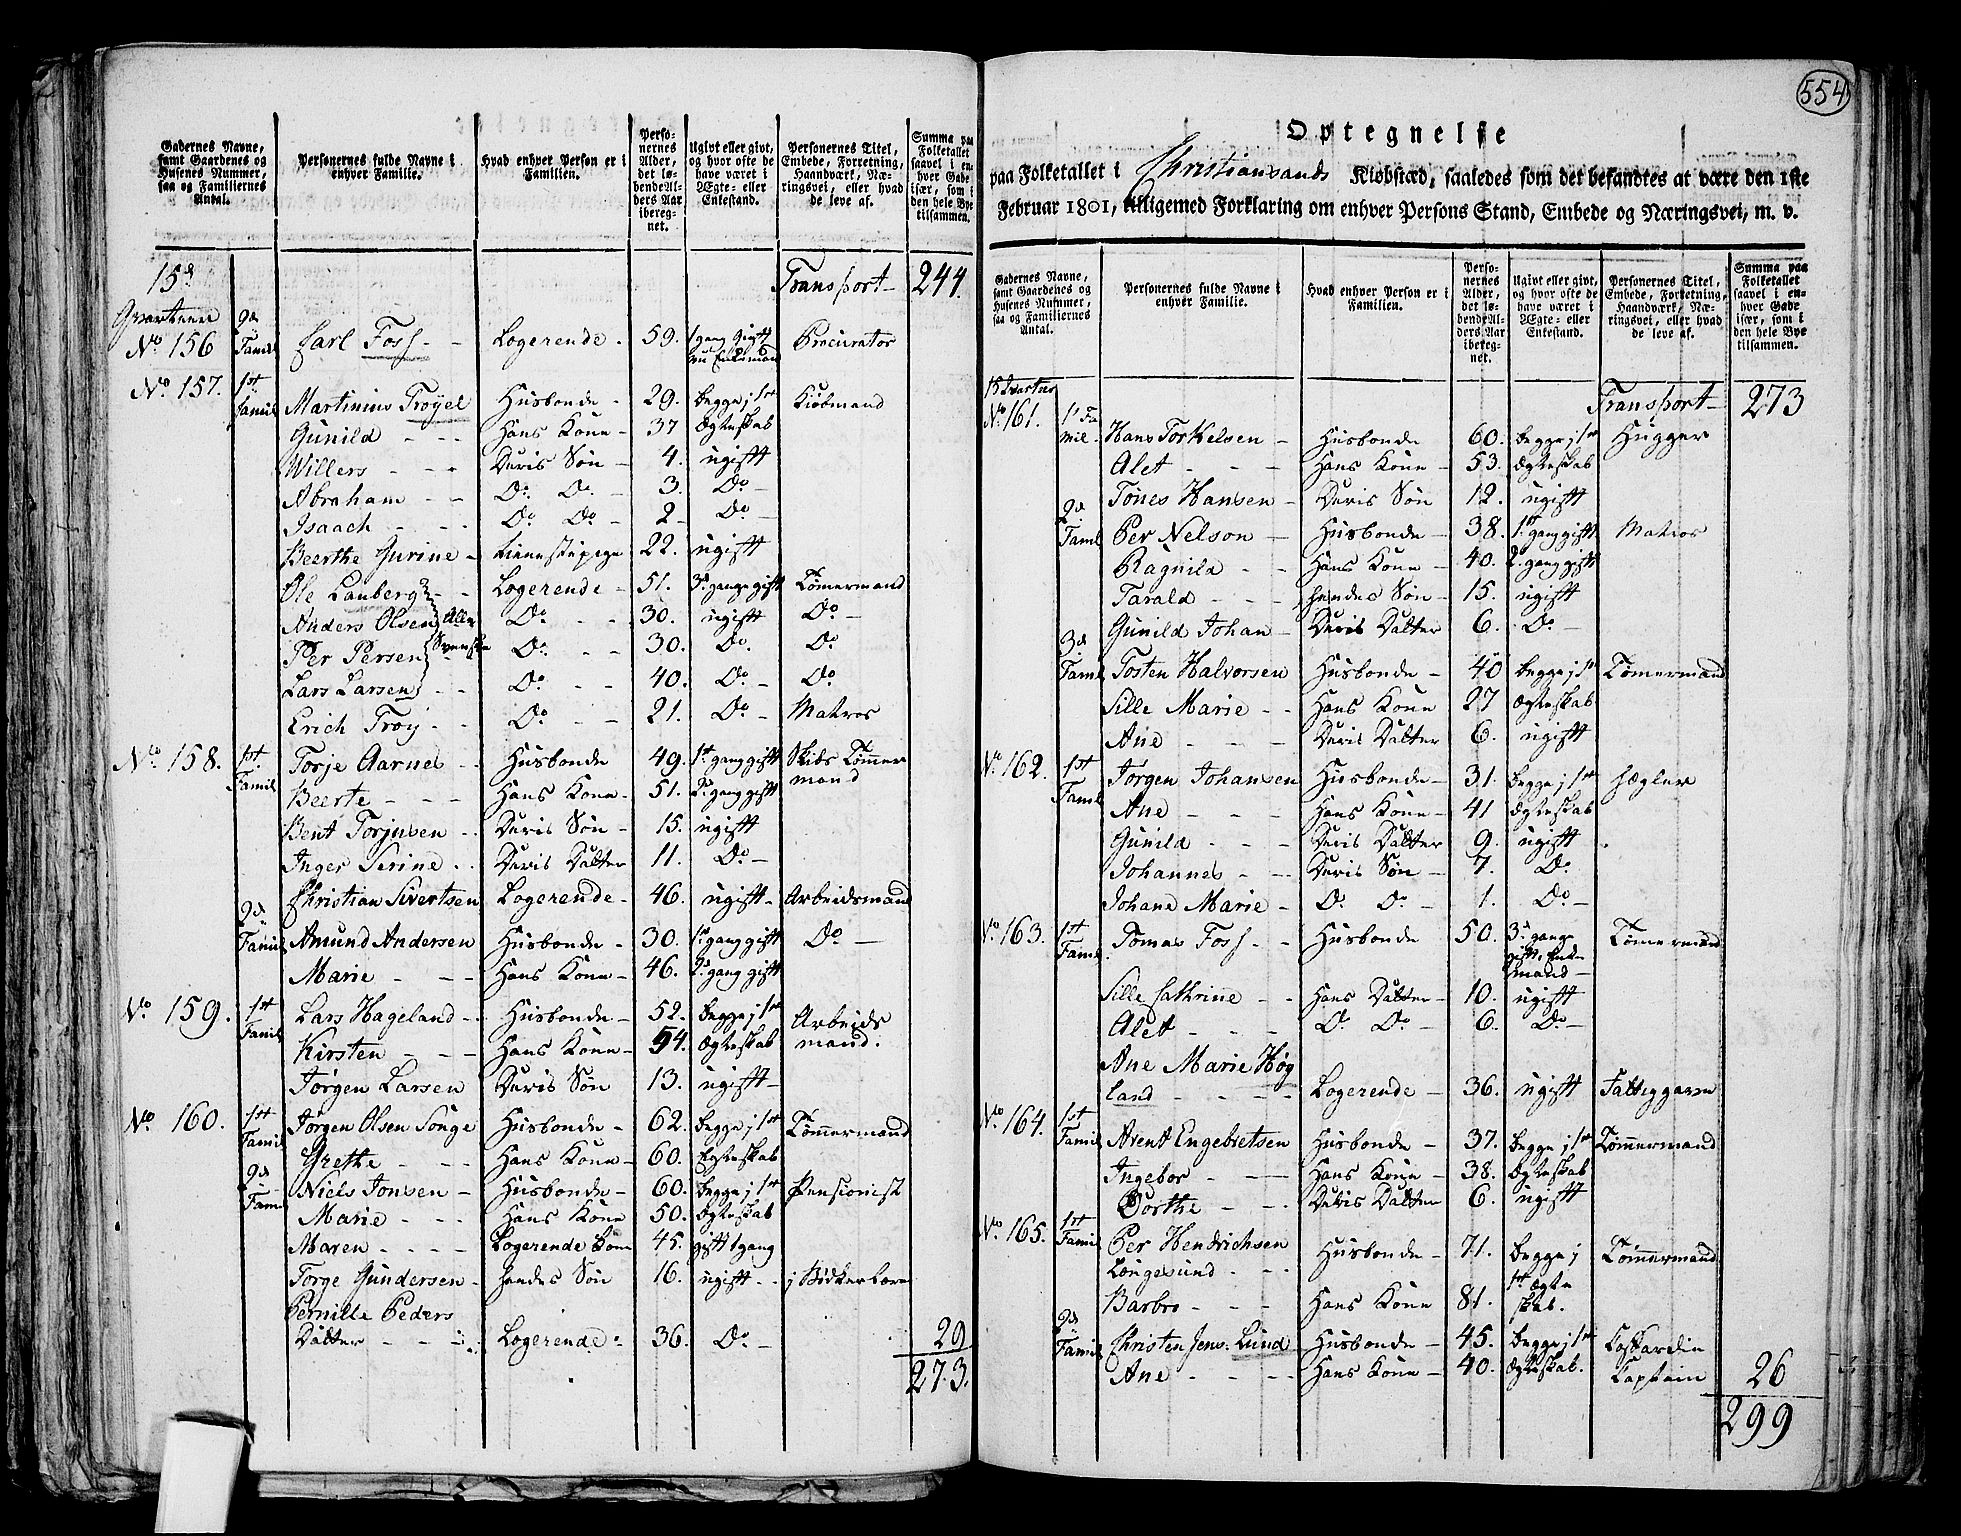 Gadernes Navne, samt Gaardenes og Husenes Nummer, saa og Familiernes Antal.
Personernes fulde Navne i enhver Familie.
Hvad enhver Person er i Familien.
Personernes Alder, det løbende Alders Aar iberegnet.
Ugivt eller givt, og hvor ofte de have været i Ægte- eller Enkestand.
Personernes Titel, Embede, Forretning, Haandværk, Næringsvei, eller hvad de leve af.
Summa paa Folketallet saavel i enhver Gade især, som i den hele Bye tilsammen.
15d Transport 244.
Qvarteer
No 156 2d Famil Carl Foss - - Logerende - 59. 1 gang gift nu Enkemand Procurator
No 157. 1st Famil Martinius Troyel Husbonde - 29. begge j 1st Kiøbmand
Gunild - - - Hans Kone - 37 Ægteskab
Willers - - - Deris Søn - 4. ugift
Abraham - - Do Do - 3. Do -
Isaach - - - Do Do - 2 - Do -
Beerthe Gurine - tienestepige 22. ugift
Ole Lanberg - - Logerende - 51. 3de gange gift Tømermand
Anders Olsen Alle Do - - 30. ugift Do -
Per Persen Svenske Do - - 30. Do. Do.
Lars Larsen - - Do - - 40. Do - Do
Erich Troy - - Do - - 21. Do - Matros
No 158. 1st Famil Torje Aarnes - - Husbonde 49. 1st gang gift Skibs Tømer
Beerte - - - Hans Kone - 51. 2d gang gift mand
Bent Torjusen - - Deris Søn - 15. ugift
Inger Serine - - Deris Datter 11. Do -
Christian Sivertsen Logerende - 46. ugift - Arbeidsmand
2d Famil Amund Andersen Husbonde - 30. 1st gang gift Do -
Marie - - - Hans Kone - 46. 2d gang gift
No 159. 1st Famil Lars Hageland - - Husbonde - 52. begge j 1st Arbeids
Kirsten - - - Hans Kone - 54. Ægteskab mand.
Jørgen Larsen Deris Søn 13. ugift -
No 160. 1st Famil Jørgen Olsen Songe Husbonde - 62. begge j 1st Tømmermand
Grethe - - - Hans Kone - 60. Egteskab
2d Fam Niels Jonsen - Husbonde - 60. begge j 1st Pensionist
Marie - - - Hans Kone 50. Ægteskab
Maren - - - - Logerende Kone 45. gift 1 gang
Torge Gundersen - hendes Søn 16. ugift - - j Bødkerlære
Pernille Peders
Datter - - - Logerende - 36. Do - 29
273.
554
Optegnelse
paa Folketallet i Christiansands Kiøbstæd, saaledes som det befandtes at være den 1ste
Februar 1801, tilligemed Forklaring om enhver Persons Stand, Embede og Næringsvei, m. v.
Gadernes Navne, samt Gaardenes og Husenes Nummer, saa og Familiernes Antal.
Personernes fulde Navne i enhver Familie.
Hvad enhver Person er i Familien.
Personernes Alder, det løbende Alders Aar iberegnet.
Ugivt eller givt, og hvor ofte de have været i Ægte- eller Enkestand.
Personernes Titel, Embede, Forretning, Haandværk, Næringsvei, eller hvad de leve af.
Summa paa Folketallet saavel i enhver Gade især, som i den hele Bye tilsammen.
Transport - 273
No 161. 1st Famil - Hans Torkelsen - Husbonde 60. begge j 1st Hugger
Alet - - - Hans Kone - 53. Ægteskab
Tønes Hansen - Deris Søn 12. ugift
2d Faml Per Nelson - Husbonde - 38. 1st gang gift Matros
Ragnild - - Hans Kone - 40. 2. gang gift
Tarald - - - hendes Søn - 15. ugift
Gunild Johan - Deris Datter 6. Do -
3d Faml Tosten Halvorsen Husbonde - 40 begge j 1st Tømermand
Sille Marie - - Hans Kone 27 Ægteskab
Ane - - - Deris Datter 6. ugift
No 162. 1st Faml Jørgen Johansen Husbonde - 31. begge j 1st
Ane - - - Hans Kone - 41 Ægteskab
Gunild - - - Deris Datter 9. ugift
Johannes - - - Deris Søn - 7. Do.
Johane Marie - Do. Do - 1. Do -
No 163. 1st Faml Tomas Foss - Husbonde 50. 3de gange gift, Enkemand - Tømermand
Sille Cathrine - - Hans Datter - 10. ugift
Alet - - - Do. Do - 6. Do -
Ane Marie Høg
land - - - - Logerende - 36. ugift
No 164. 1st Famil Arent Engebretsen Husbonde - 37. begge j 1st Tømmermand
Ingebor - - - Hans Kone - 38. Ægteskab
Dorthe - - - Deris Datter 6. ugift
No 165. 1st Famil Per Hendrichsen
Langesund - - - Husbonde - 71. begge j Tømmermand
Barbro - - - Hans Kone 81. 1st Ægteskab.
2d Famil Christen Jens. Lund Husbonde - 45. begge j 1st
Ane - - - - Hans Kone - 40. Ægteskab. Captain 26
299